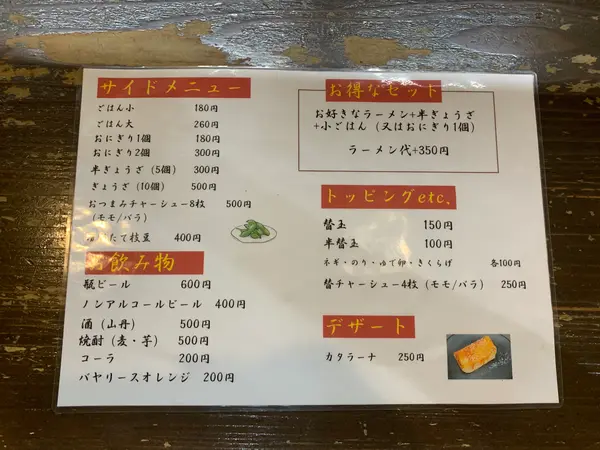 サイドメニュー
ごはん小 180円
ごはん大 260円
おにぎり1個 180円
おにぎり2個 300円
半ぎょうざ (5個) 300円
ぎょうざ (10個) 500円
おつまみチャーシュー8枚 500円
(モモ/バラ)
たて枝豆 400円
お飲み物
瓶ビール 600円
ノンアルコールビール 400円
酒 (山丹) 500円
焼酎 (麦・芋) 500円
コーラ 200円
バヤリースオレンジ 200円
お得なセット
お好きなラーメン+半ぎょうざ
+小ごはん (又はおにぎり1個)
ラーメン代+350円
トッピングetc.
替玉 150円
半替玉 100円
ネギ・のり・ゆで卵・きくらげ 各100円
替チャーシュー4枚 (モモ/バラ) 250円
デザート
カタラーナ 250円